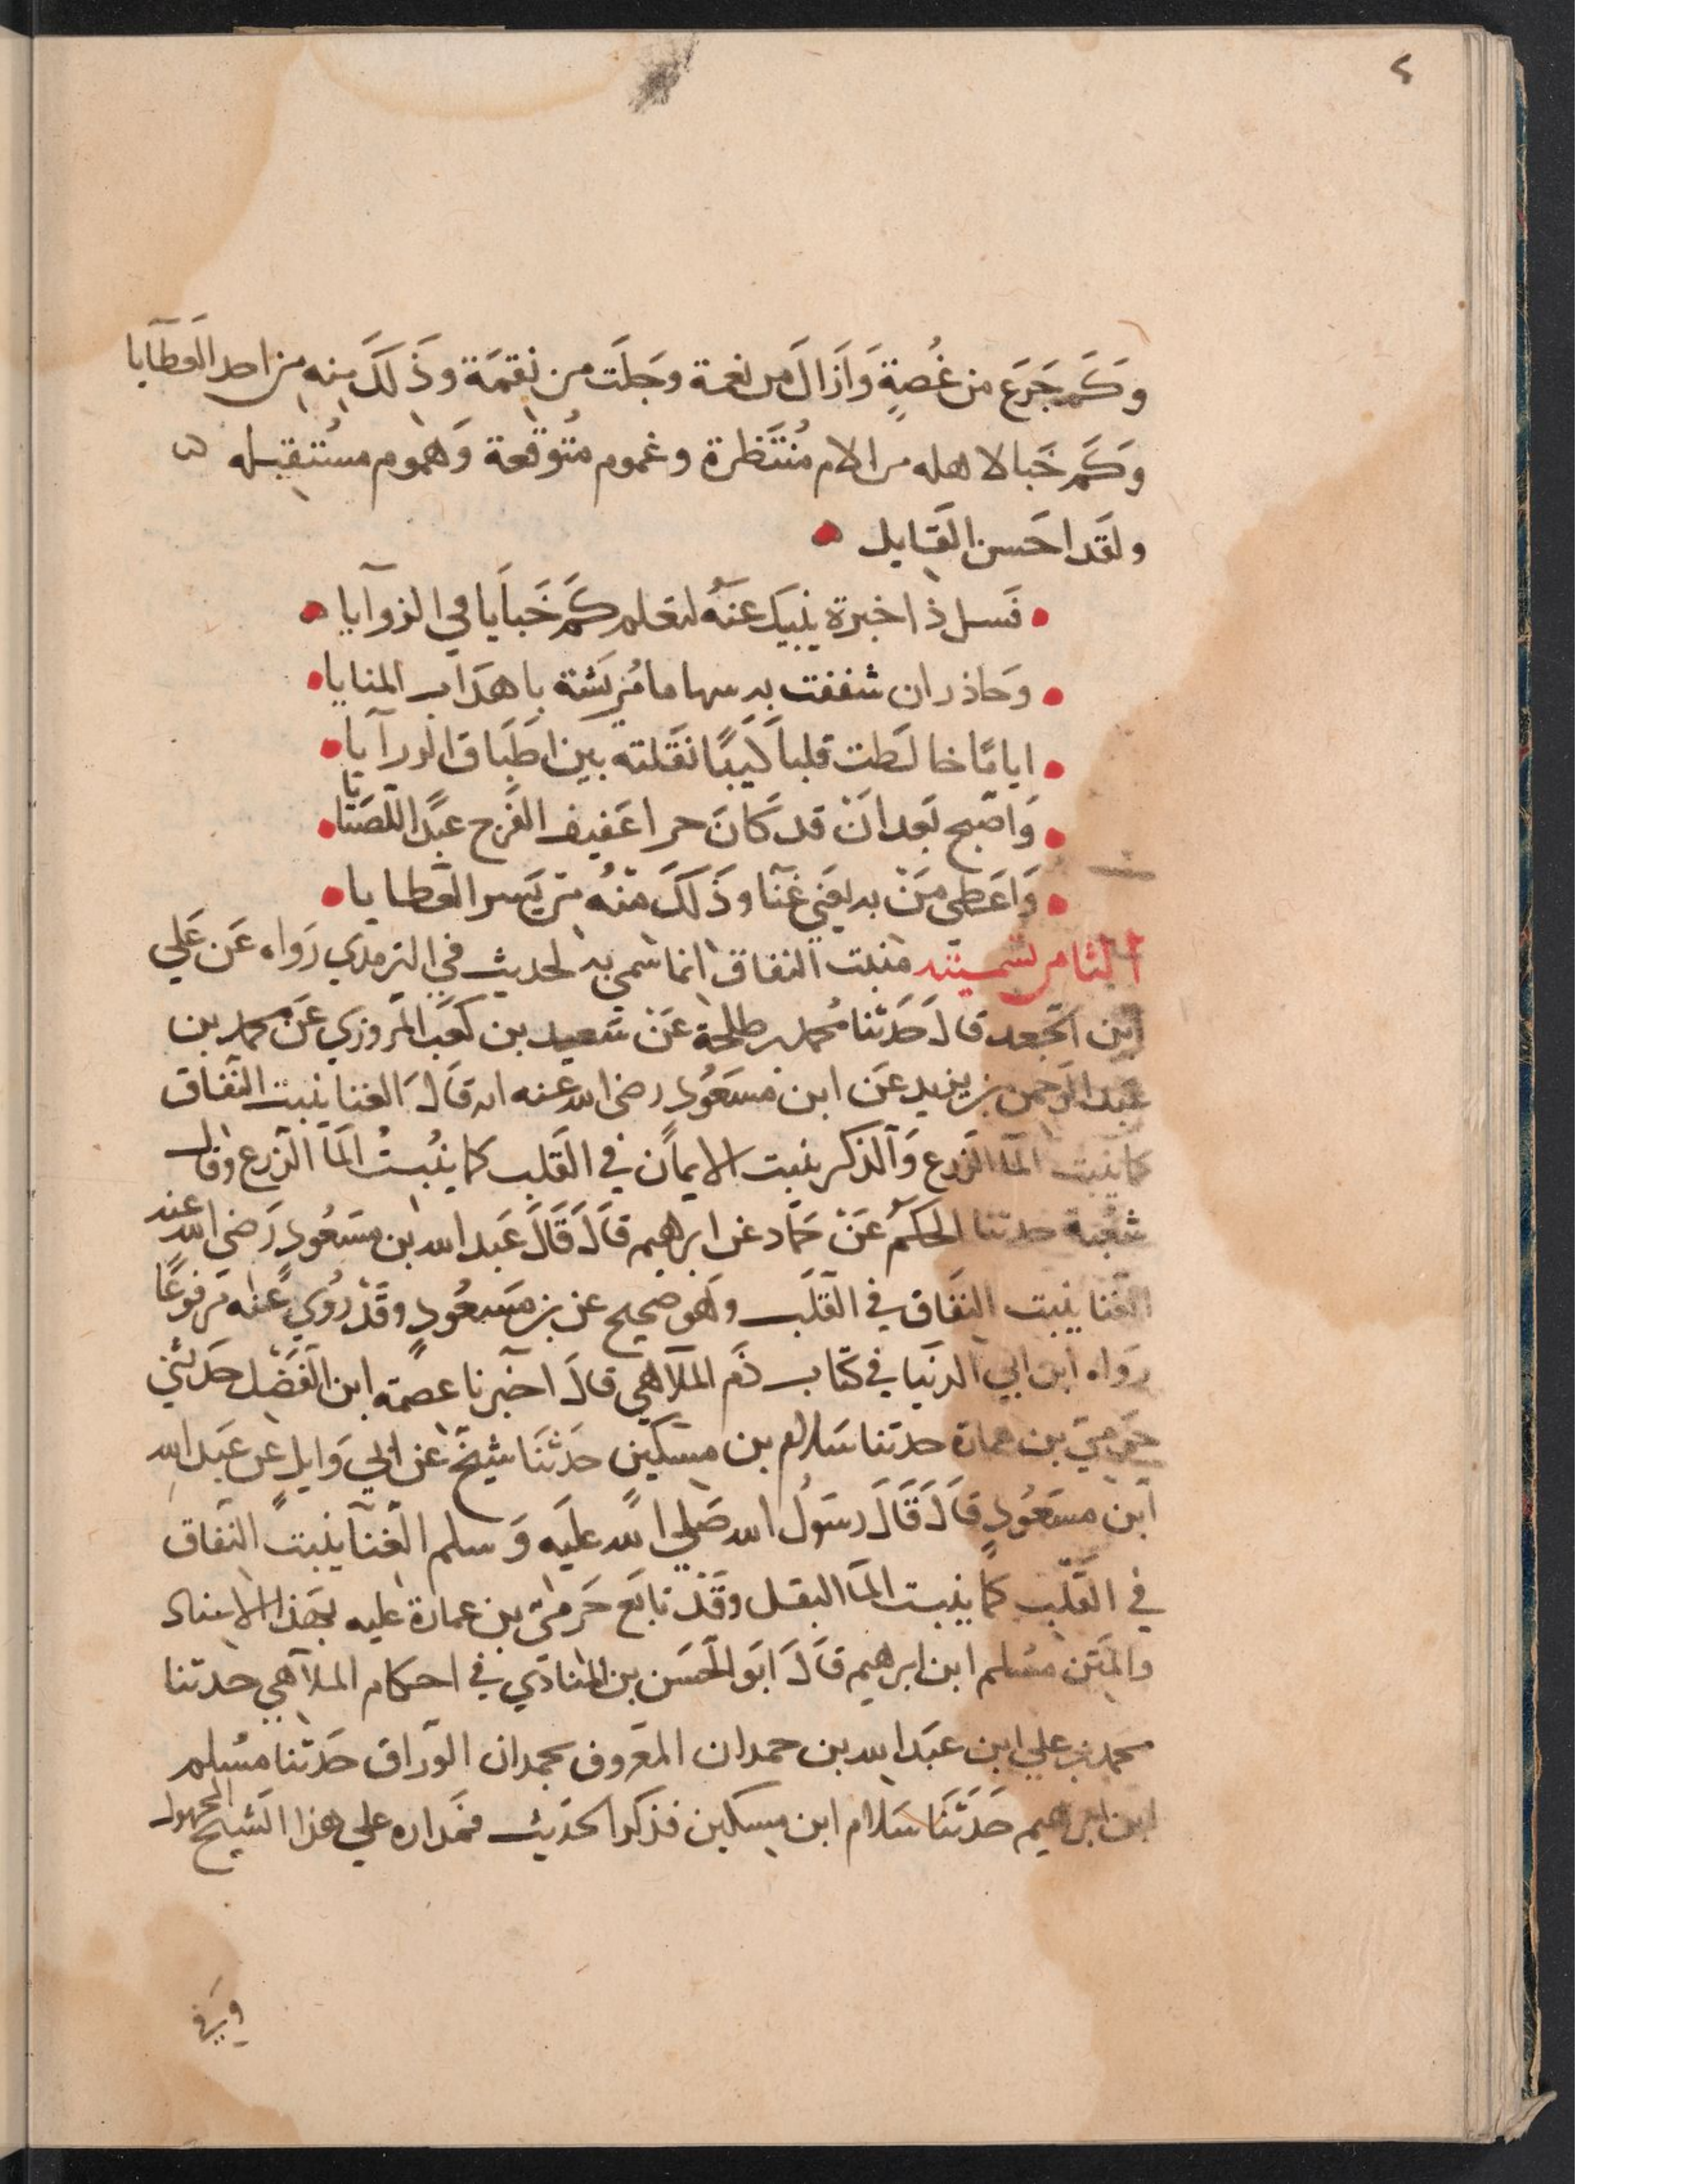 ٤
وَكَم جَرَع من غُصةٍ وَازَالَ من نعمة وجَلَت من نِقمَة وذَلكَ مِنه من احد العَطَايا
وَكَم خَبا لاهله من الام مُنْتَظرة وغموم مُتوقعة وَهموم مستقبله
ولقد احَسن القَايل
فَسل ذا خبرة ينبيك عنهُ لتعلم كَم خَبايا في الزوآيا
وَحاذر ان شغفت به سهاما مُريَشة باهدَاب المنايا
اياما خالطت قلبا كيبًا نقلته بين اطباق الورآيا
وَاصبح بَعد انْ قد كانَ حرا عفيف الفَرج عبدًا للصَبايا
وَاعَطي مَنْ به يغني غنًا وذَلكَ منْهُ من يَسر العَطايا
الثامن تسميته منبت النفاق انما سمي به لحديث في الترمذي رَواه عَن عَلي
ابن الجعد قالَ حَدَثنا محمد بن طلحة عَنْ سَعيد بن كعَب المروزي عَن محمد بن
عَبد الرَحمن بن يزيد عَن ابن مسَعُود رضي الله عنه انه قالَ الغنا ينبت النفاق
كما ينبت المَا الزرع وَالذكر ينبت الايمان في القَلب كما ينُبتُ المَا الزرع وقال
شُعبة حدثنا الحكم عَنْ حَماد عَن ابرهيم قالَ قَالَ عَبد الله بن مسَعُود رَضي الله عنه
الغنا ينبت النفَاق في القَلب وهَو صحيح عن بن مسَعُودٍ وقَدْ رُوي عَنه مَرفوعًا
رَواه ابن ابي الدنيا في كتاب ذَم الملاهي قالَ اخبرنا عصمة ابن الفَضْل حَدثني
حَرميّ بن عمارة حدثنا سَلام بن مسكين حَدَثنَا شيخٌ عَن ابي وَايل عن عَبد الله
ابن مسَعُودٍ قالَ قَالَ رسَولُ الله صَلي الله عليَه وَسلم الغَنا ينبت النفاق
في القَلب كما ينبت المَا البقل وقَدْ تابَع حَرميّ بن عمارة عليه بهَذا الاسناد
والمَتن مسُلم ابن ابرهيم قَالَ ابَو الحَسَن بن المُنادَي في احكام الملاهي حدثنا
محمد بن علي ابن عبَد الله بن حمدان المعَروف بحمدان الوَراق حَدثنا مسُلم
ابن ابراهيم حَدَثنَا سَلام ابن مسكين فذكر الحدَيث فمَداره علي هذا الشَيخ المجهول
وَفي